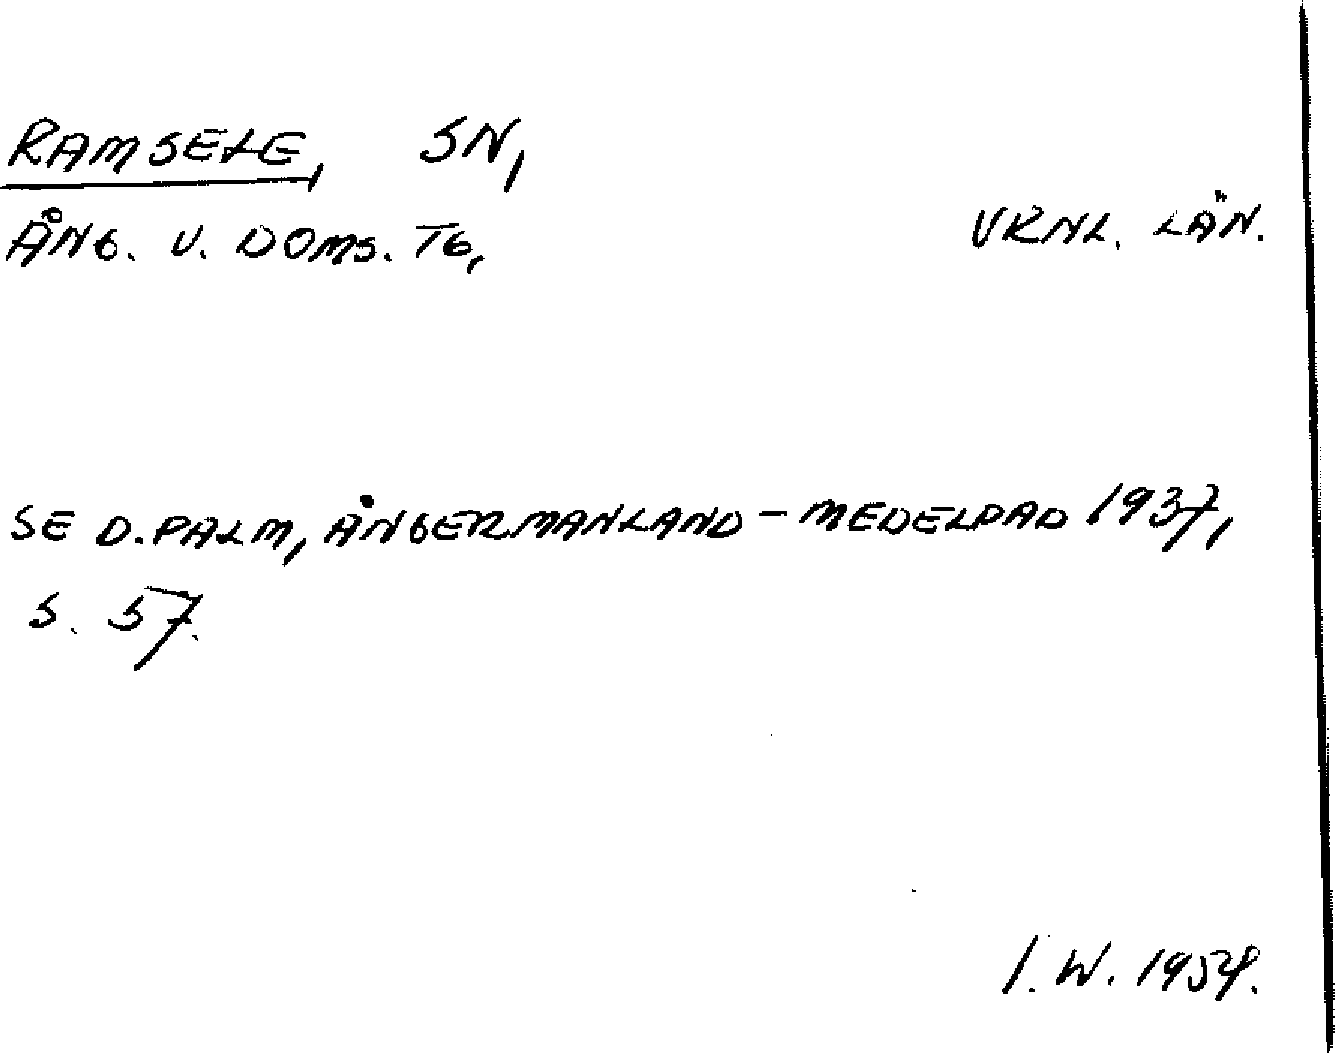 RAMSELE, SN,
ÅNG. V. DOMS. TG,
VRNL. LÄN.
SE D. PALM, ÅNGERMANLAND – MEDELPAD 1937,
S. 57.
I. W. 1954.